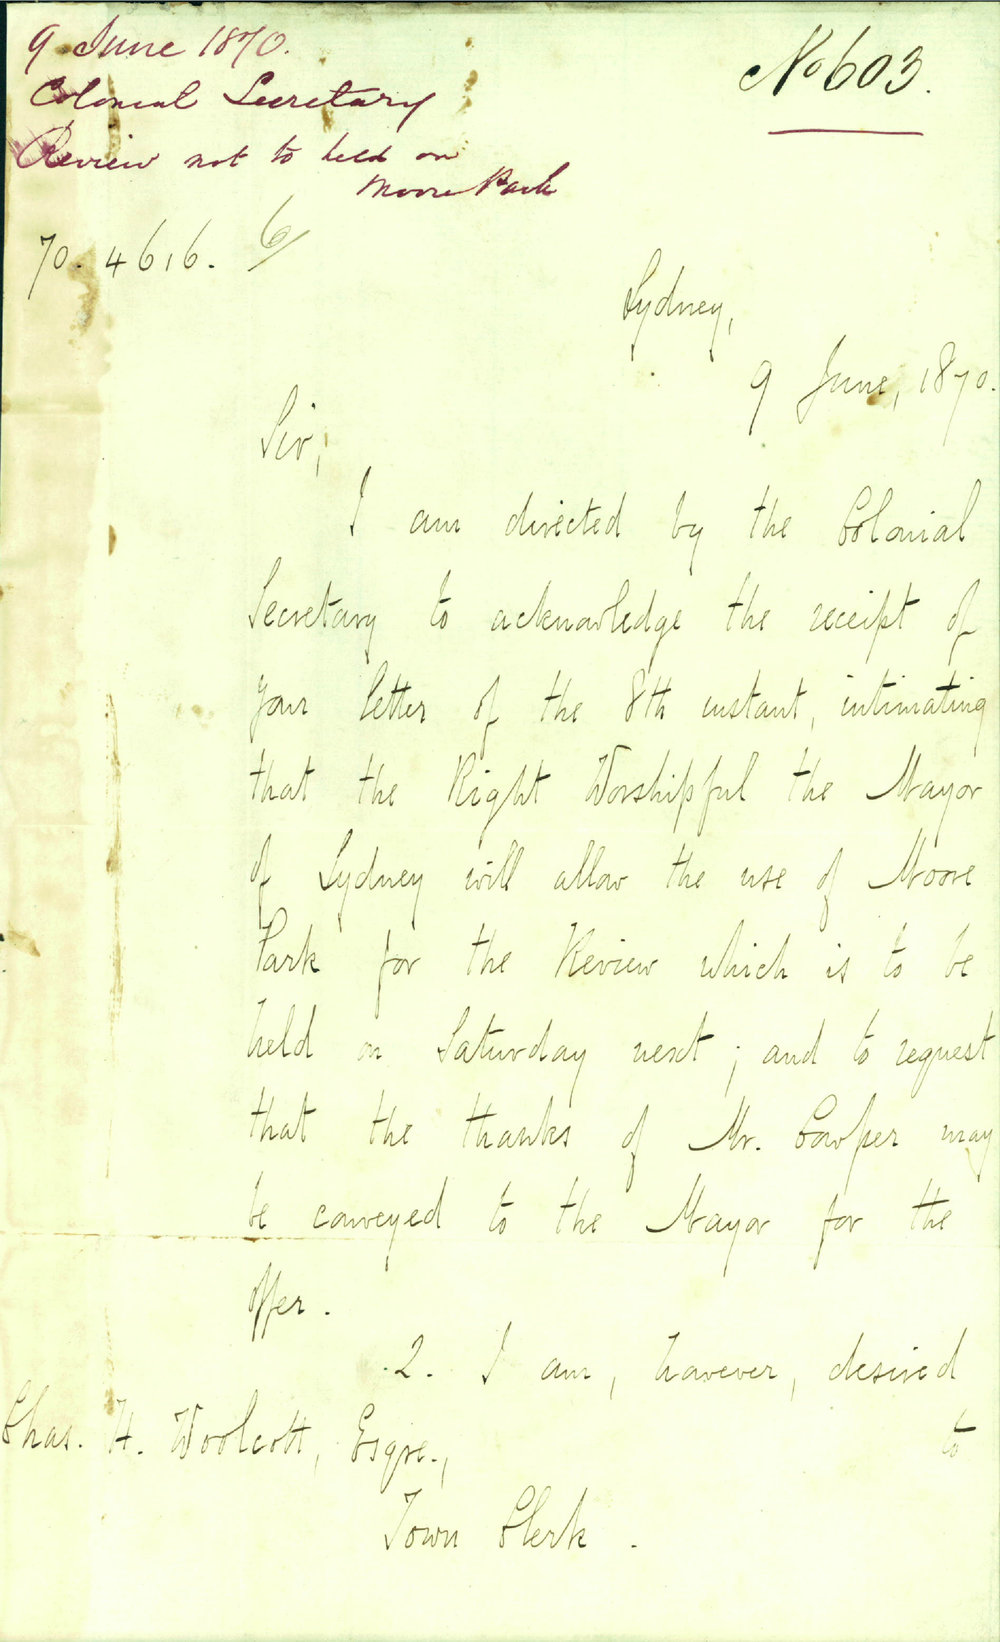 9 June 1870.
No 603.
Colonial Secretary
Review not to held on
Moore Park
70. 4616. 6/
Sydney,
9 June, 1870.
Sir,
I am directed by the Colonial
Secretary to acknowledge the receipt of
your letter of the 8th instant, intimating
that the Right Worshipful the Mayor
of Sydney will allow the use of Moore
Park for the Review which is to be
held on Saturday next; and to request
that the thanks of Mr. Cowper may
be conveyed to the Mayor for the
offer.
2. I am, however, desired
to
Chas. H. Woolcott, Esqre.,
Town Clerk.